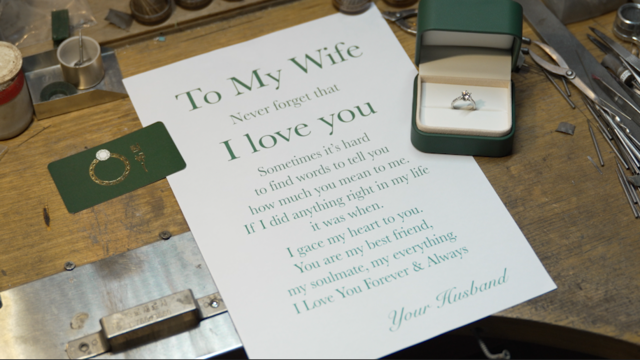 To My Wife
Never forget that
I love you
Sometimes it's hard
to find words to tell you
how much you mean to me.
If I did anything right in my life
it was when.
I gace my heart to you.
You are my best friend,
my soulmate, my everything.
I Love You Forever & Always
Your Husband